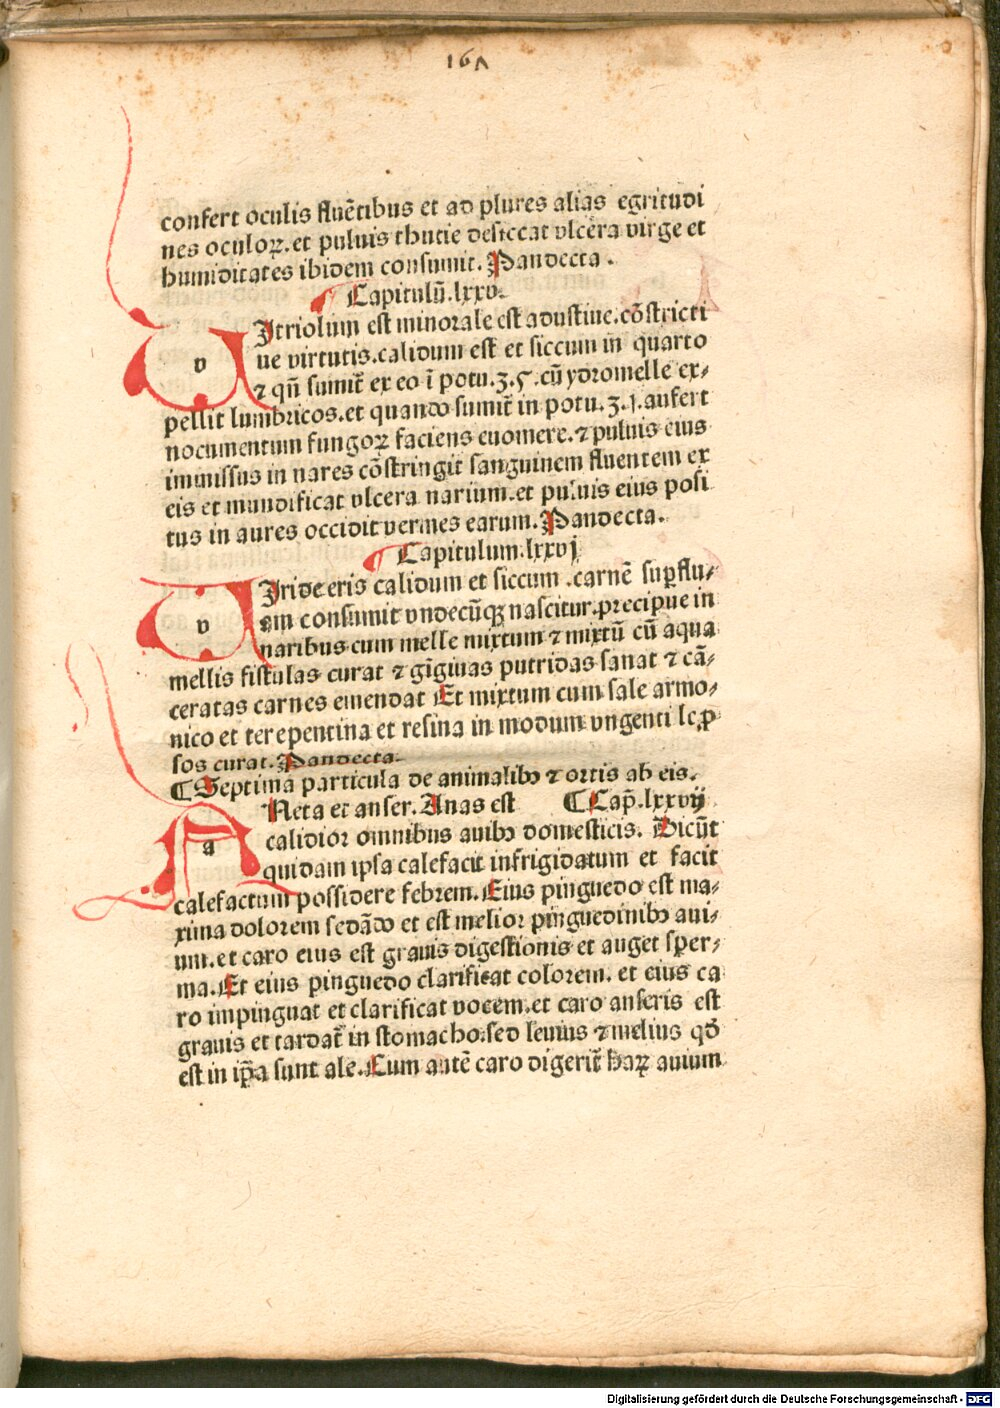 167
confert oculis fluētibus et ad plures alias egritudi
nes oculoꝝ. et puluis thutie desiccat vlcera virge et
humiditates ibidem consumit. Pandecta.
Capitulū. lxxv.
vItriolum est minorale est adustiue. cōstricti
ue virtutis. calidum est et siccum in quarto
⁊ qn̄ sumit̄ ex eo ī potu. ʒ. 5. cū ydromelle ex⸗
pellit lumbricos. et quando sumit̄ in potu. ʒ. 1. aufert
nocumentum fungoꝝ faciens euomere. ⁊ puluis eius
imuissus in nares cōstringit sanguinem fluentem ex
eis et mundificat vlcera narium. et puluis eius posi
tus in aures occidit vermes earum. Pandecta.
Capitulum. lxxvj
vIride eris calidum et siccum. carnē suꝑflu⸗
am consumit vndecūqꝫ nascitur. precipue in
naribus cum melle mixtum ⁊ mixtū cū aqua
mellis fistulas curat ⁊ gīgiuas putridas sanat ⁊ cā⸗
ceratas carnes emendat Et mixtum cum sale armo⸗
nico et terepentina et resina in modum vngenti leꝓ
sos curat. Pandecta.
¶ Septima particula de animalibꝰ ⁊ ortis ab eis.
aNeta et anser. Anas est ¶ Cap̄. lxxvij
calidior omnibus auibꝰ domesticis. Dicūt
quidam ipsa calefacit infrigidatum et facit
calefactum possidere febrem. Eius pinguedo est ma⸗
xima dolorem sedādo et est melior pinguedinibꝰ aui⸗
um. et caro eius est grauis digestionis et auget sper⸗
ma. Et eius pinguedo clarificat colorem. et eius ca
ro impinguat et clarificat vocem. et caro anseris est
grauis et tardat̄ in stomacho. sed leuius ⁊ melius qd̄
est in ip̄a sunt ale. Cum autē caro digerit̄ haꝝ auium
Digitalisierung gefördert durch die Deutsche Forschungsgemeinschaft - DFG